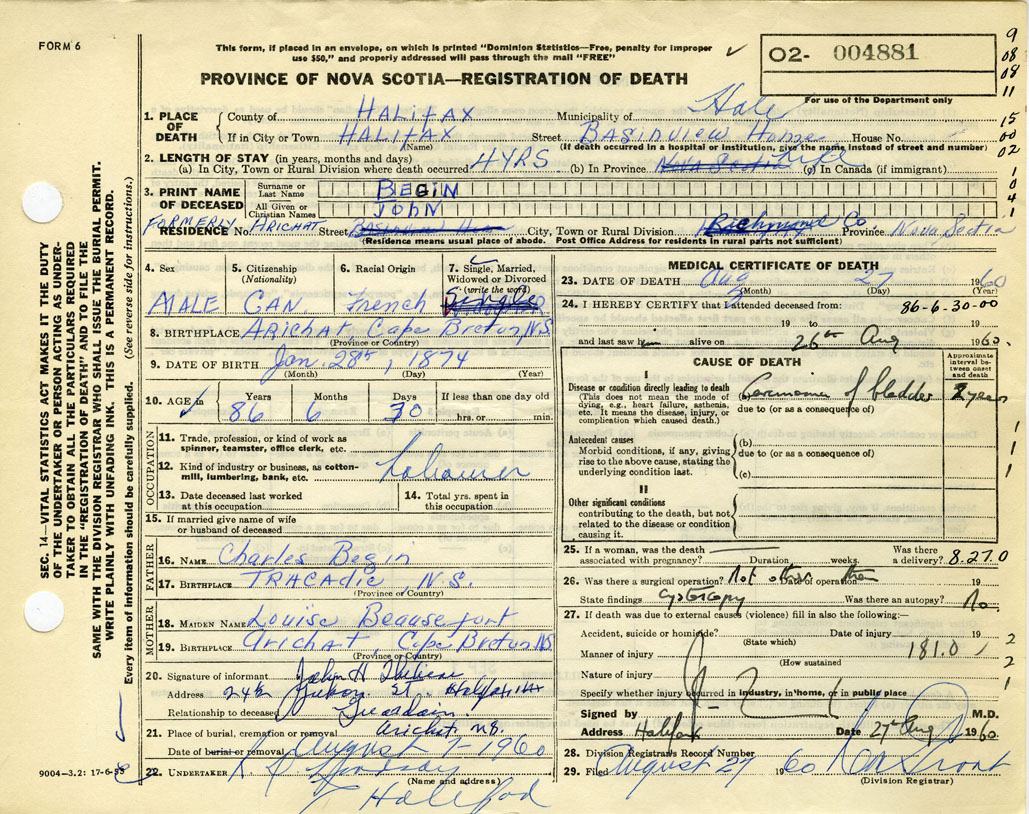 FORM 6
This form, if placed in an envelope, on which is printed "Dominion Statistics—Free, penalty for improper
use $50," and properly addressed will pass through the mail "FREE"
✓
O2- 004881
For use of the Department only
9
08
08
11
15
00
02
1
0
4
1
PROVINCE OF NOVA SCOTIA—REGISTRATION OF DEATH
1. PLACE OF DEATH
County of HALIFAX Municipality of
If in City or Town HALIFAX Street BASINVIEW Home House No.
(Name) (If death occurred in a hospital or institution, give the name instead of street and number)
2. LENGTH OF STAY (in years, months and days)
(a) In City, Town or Rural Division where death occurred 4YRS (b) In Province Nova Scotia Life (c) In Canada (if immigrant)
3. PRINT NAME OF DECEASED
Surname or Last Name BEGIN
All Given or Christian Names JOHN
FORMERLY
RESIDENCE No. ARICHAT Street City, Town or Rural Division Richmond Co Province Nova Scotia
(Residence means usual place of abode. Post Office Address for residents in rural parts not sufficient)
4. Sex
MALE
5. Citizenship (Nationality)
CAN.
6. Racial Origin
French
7. Single, Married, Widowed or Divorced (write the word)
Single
8. BIRTHPLACE Arichat, Cape Breton, N.S.
(Province or Country)
9. DATE OF BIRTH Jan. 28th, 1874
(Month) (Day) (Year)
10. AGE in Years Months Days If less than one day old
86 6 30 hrs. or min.
OCCUPATION
11. Trade, profession, or kind of work as spinner, teamster, office clerk, etc.
12. Kind of industry or business, as cotton-mill, lumbering, bank, etc.
Labourer
13. Date deceased last worked at this occupation
14. Total yrs. spent in this occupation
15. If married give name of wife or husband of deceased
FATHER
16. NAME Charles Begin
17. BIRTHPLACE TRACADIE, N.S.
(Province or Country)
MOTHER
18. MAIDEN NAME Louise Beausefort
19. BIRTHPLACE Arichat, Cape Breton NS
(Province or Country)
20. Signature of informant John H
Address St. Halifax
Relationship to deceased Guardian.
21. Place of burial, cremation or removal Arichat N.S.
Date of burial or removal August 1960
22. UNDERTAKER
(Name and address)
9004—3.2: 17-6-55
MEDICAL CERTIFICATE OF DEATH
23. DATE OF DEATH Aug 27 1960
(Month) (Day) (Year)
24. I HEREBY CERTIFY that I attended deceased from:
86-6-30-00
19 to 19
and last saw him alive on 26th Aug 1960.
CAUSE OF DEATH
Approximate interval between onset and death
I
Disease or condition directly leading to death
(This does not mean the mode of dying, e.g., heart failure, asthenia, etc. It means the disease, injury, or complication which caused death.)
(a) Carcinoma of bladder 2 years
due to (or as a consequence of)
Antecedent causes
Morbid conditions, if any, giving rise to the above cause, stating the underlying condition last.
(b)
due to (or as a consequence of)
(c)
II
Other significant conditions
contributing to the death, but not related to the disease or condition causing it.
1
1
1
25. If a woman, was the death associated with pregnancy? Duration weeks. Was there a delivery?
8.27.0
26. Was there a surgical operation? Not other than Date of operation 19
State findings cystoscopy Was there an autopsy? No.
27. If death was due to external causes (violence) fill in also the following:—
Accident, suicide or homicide? Date of injury 19
(State which)
Manner of injury 181.0
(How sustained
Nature of injury
Specify whether injury occurred in industry, in home, or in public place
2
2
1
Signed by M.D.
Address Halifax Date 27 Aug 1960
28. Division Registrars Record Number
29. Filed August 27 1960
(Division Registrar)
SEC. 14—VITAL STATISTICS ACT MAKES IT THE DUTY
OF THE UNDERTAKER OR PERSON ACTING AS UNDER-
TAKER TO OBTAIN ALL THE PARTICULARS REQUIRED
IN THE "REGISTRATION OF DEATH" AND TO FILE THE
SAME WITH THE DIVISION REGISTRAR WHO SHALL ISSUE THE BURIAL PERMIT.
WRITE PLAINLY WITH UNFADING INK. THIS IS A PERMANENT RECORD.
Every item of information should be carefully supplied. (See reverse side for instructions.)